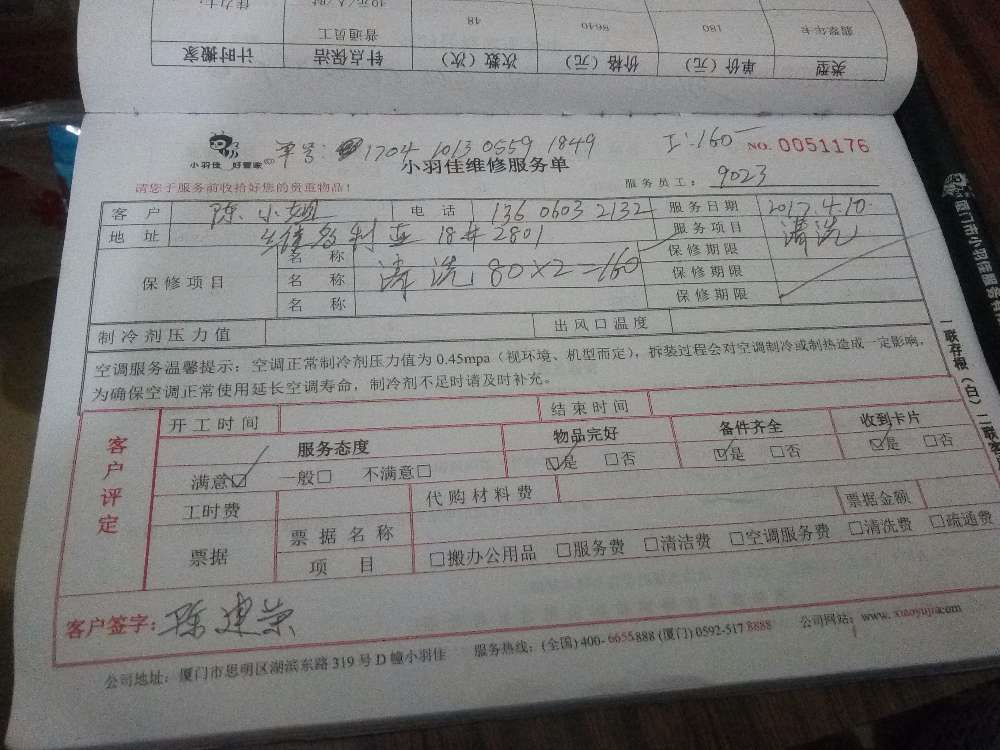 佳力卡 10元/人/时 普通员工 48 8640 180 翡翠年卡
计时搬家 针点保洁 次数（次） 价格（元） 单价（元） 类型
小羽佳 好管家 单号: 1704 1013 0559 1849 工:160 NO. 0051176
小羽佳维修服务单
请您于服务前收拾好您的贵重物品! 服务员工: 9023
客户 陈小姐 电话 136 0603 2132 服务日期 2017.4.10.
地址 维多利亚 18# 2801 服务项目 清洗
保修项目 名称 保修期限
名称 清洗 80×2=160 保修期限
名称 保修期限
制冷剂压力值 出风口温度
空调服务温馨提示：空调正常制冷剂压力值为0.45mpa（视环境、机型而定），拆装过程会对空调制冷或制热造成一定影响，
为确保空调正常使用延长空调寿命，制冷剂不足时请及时补充。
客户评定 开工时间 结束时间
服务态度 物品完好 备件齐全 收到卡片
满意☑ 一般□ 不满意□ ☑是 □否 ☑是 □否 ☑是 □否
工时费 代购材料费
票据 票据名称 票据金额
项目 □搬办公用品 □服务费 □清洁费 □空调服务费 □清洗费 □疏通费
客户签字: 陈建荣
公司地址：厦门市思明区湖滨东路319号D幢小羽佳 服务热线：(全国) 400-6655888 (厦门) 0592-517 8888 公司网站：www.xiaoyujia.com
一联存根（白）二联客
厦门市小羽佳服务